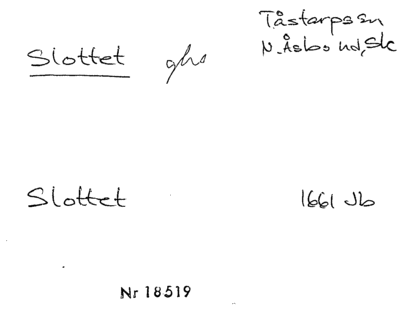 Slottet ghs
Tåstarps sn
N. Åsbo hd, Sk
Slottet 1661 Jb
Nr 18519